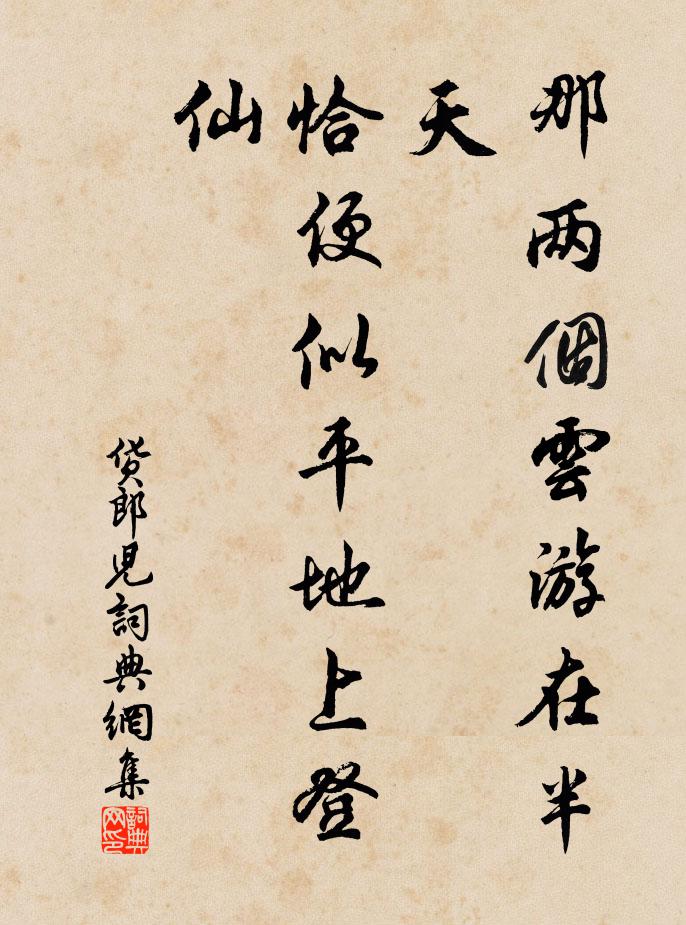 那两個雲游在半
天
恰便似平地上登
仙
货郎児詞典網集
詞典
网印